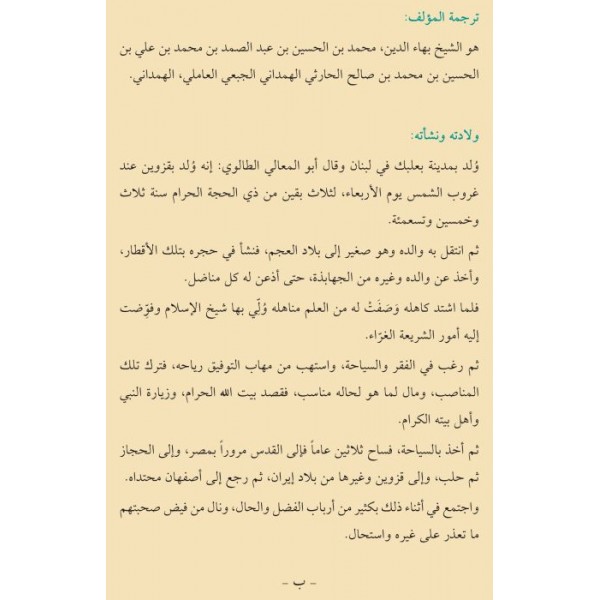 ترجمة المؤلف:
هو الشيخ بهاء الدين، محمد بن الحسين بن عبد الصمد بن محمد بن علي بن
الحسين بن محمد بن صالح الحارثي الهمداني الجبعي العاملي، الهمداني.
ولادته ونشأته:
وُلد بمدينة بعلبك في لبنان وقال أبو المعالي الطالوي: إنه وُلد بقزوين عند
غروب الشمس يوم الأربعاء، لثلاث بقين من ذي الحجة الحرام سنة ثلاث
وخمسين وتسعمئة.
ثم انتقل به والده وهو صغير إلى بلاد العجم، فنشأ في حجره بتلك الأقطار،
وأخذ عن والده وغيره من الجهابذة، حتى أذعن له كل مناضل.
فلما اشتد كاهله وَصَفَتْ له من العلم مناهله وُلِّي بها شيخ الإسلام وفوِّضت
إليه أمور الشريعة الغرّاء.
ثم رغب في الفقر والسياحة، واستهب من مهاب التوفيق رياحه، فترك تلك
المناصب، ومال لما هو لحاله مناسب، فقصد بيت الله الحرام، وزيارة النبي
وأهل بيته الكرام.
ثم أخذ بالسياحة، فساح ثلاثين عاماً فإلى القدس مروراً بمصر، وإلى الحجاز
ثم حلب، وإلى قزوين وغيرها من بلاد إيران، ثم رجع إلى أصفهان محتداه.
واجتمع في أثناء ذلك بكثير من أرباب الفضل والحال، ونال من فيض صحبتهم
ما تعذر على غيره واستحال.
- ب -